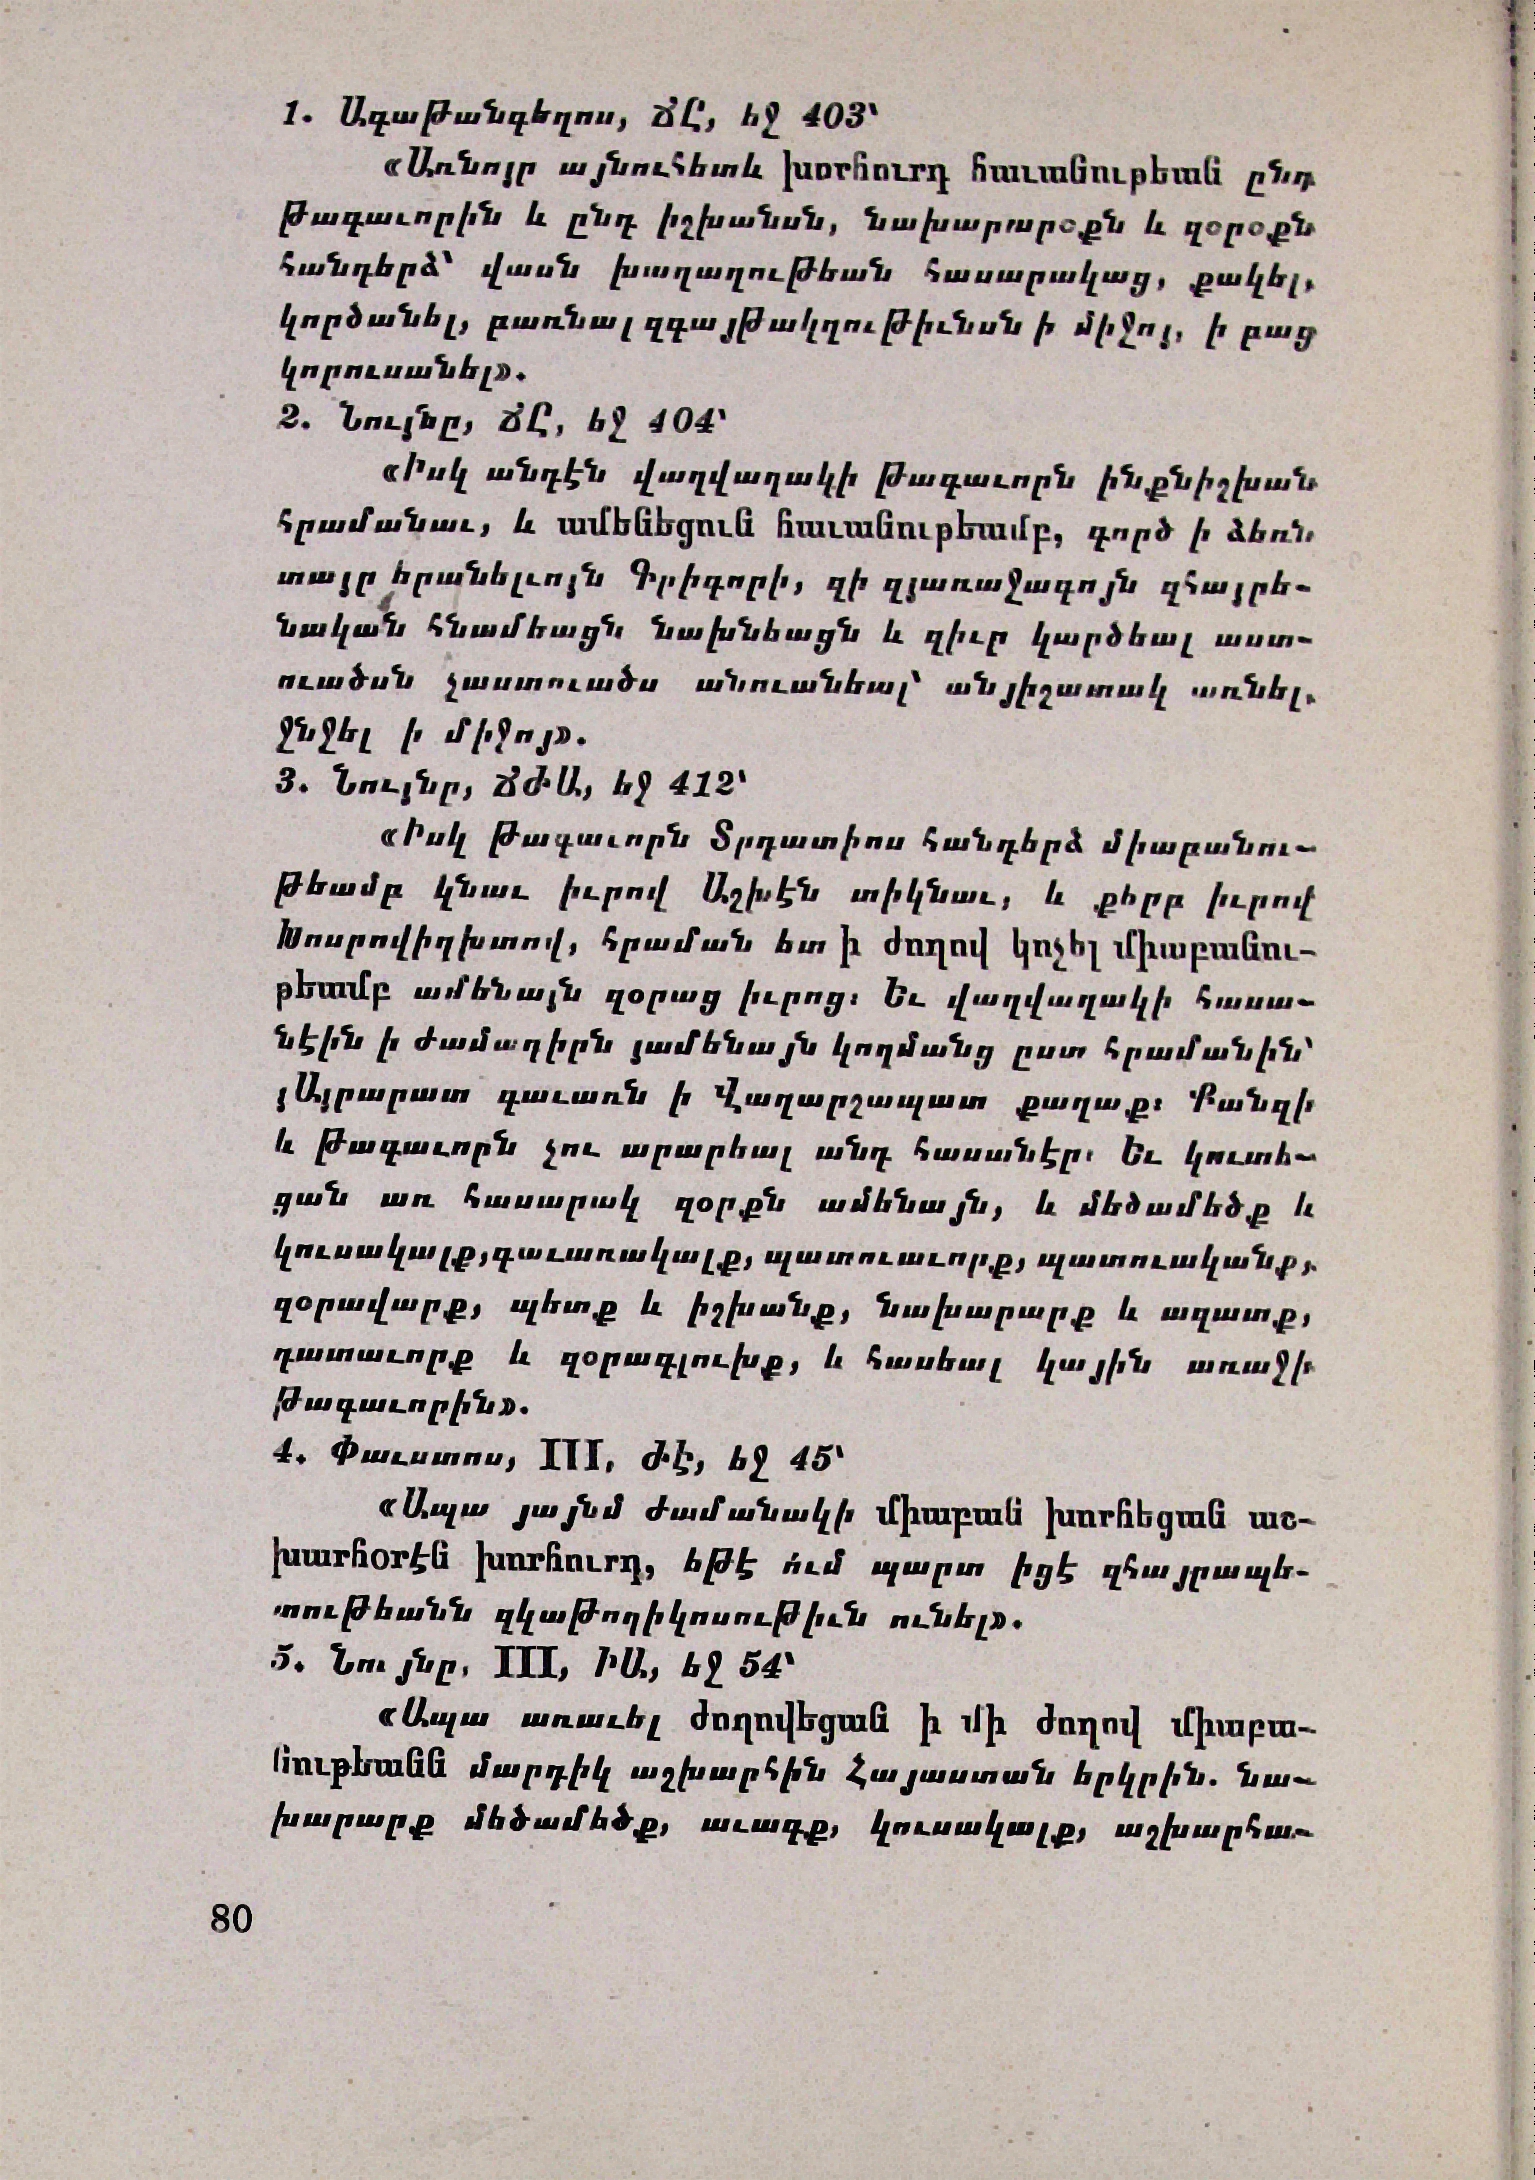 1. Ագաթանգեղոս, ՃԸ, եջ 403՝
«Առնոյր այնուհետև խորհուրդ հաւանութեան ընդ
թագաւորին և ընդ իշխանսն, նախարարօքն և զօրօքն
հանդերձ՝ վասն խաղաղութեան հասարակաց, քակել,
կործանել, բառնալ զգայթակղութիւնսն ի միջոյ, ի բաց
կորուսանել».
2. Նույնը, ՃԸ, եջ 404՝
«Իսկ անդէն վաղվաղակի թագաւորն ինքնիշխան
հրամանաւ, և ամենեցուն հաւանութեամբ, գործ ի ձեռն
տայր երանելւոյն Գրիգորի, զի զյառաջագոյն զհայրե-
նական հնամեացն նախնեացն և զիւր կարծեալ աստ-
ուածսն չաստուածս անուանեալ՝ անյիշատակ առնել,
ջնջել ի միջոյ».
3. Նույնը, ՃԺԱ, եջ 412՝
«Իսկ թագաւորն Տրդատիոս հանդերձ միաբանու-
թեամբ կնաւ իւրով Աշխէն տիկնաւ, և քերբ իւրով
Խոսրովիդխտով, հրաման ետ ի ժողով կոչել միաբանու-
թեամբ ամենայն զօրաց իւրոց։ Եւ վաղվաղակի հասա-
նէին ի ժամադիրն յամենայն կողմանց ըստ հրամանին՝
յԱյրարատ գաւառն ի Վաղարշապատ քաղաք։ Քանզի
և թագաւորն չու արարեալ անդ հասանէր։ Եւ կուտե-
ցան առ հասարակ զօրքն ամենայն, և մեծամեծք և
կուսակալք,գաւառակալք, պատուաւորք, պատուականք,
զօրավարք, պետք և իշխանք, նախարարք և ազատք,
դատաւորք և զօրագլուխք, և հասեալ կային առաջի
թագաւորին».
4. Փաւստոս, III, ԺԷ, եջ 45՝
«Ապա յայնմ ժամանակի միաբան խորհեցան աշ-
խարհօրէն խորհուրդ, եթէ ո՛ւմ պարտ իցէ զհայրապե-
տութեանն զկաթողիկոսութիւն ունել».
5. Նույնը, III, ԻԱ, եջ 54՝
«Ապա առաւել ժողովեցան ի մի ժողով միաբա-
նութեանն մարդիկ աշխարհին Հայաստան երկրին. նա-
խարարք մեծամեծք, աւագք, կուսակալք, աշխարհա-
80